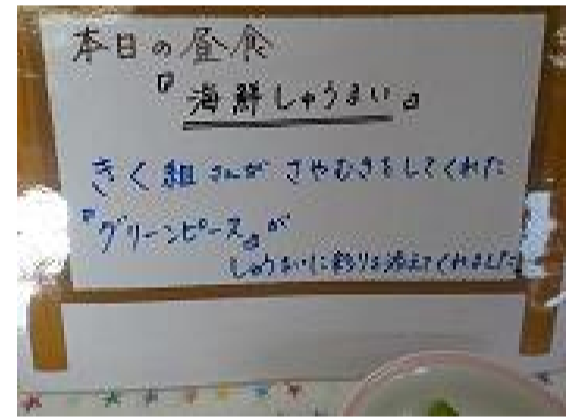 本日の昼食
『海鮮しゅうまい』
きく組さんがさやむきをしてくれた
『グリーンピース』が
しゅうまいに彩りを添えてくれました